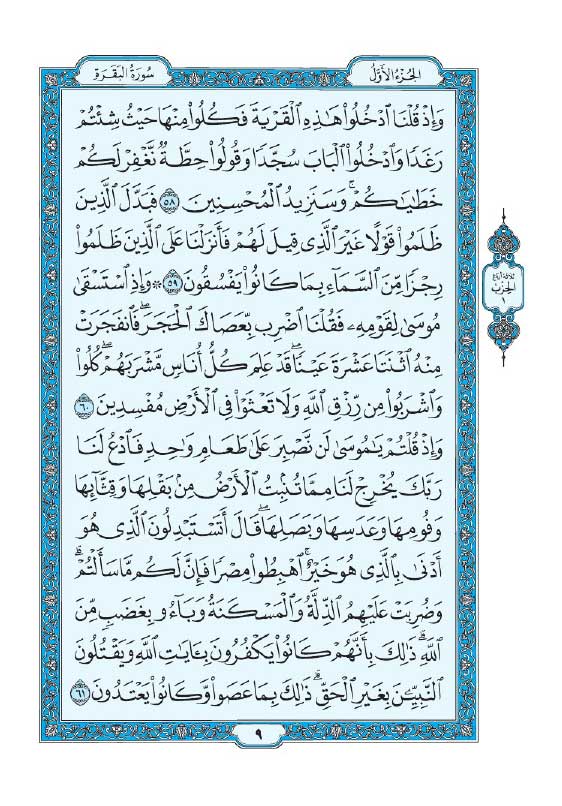 سُورَةُ البَقَرَةِ
الجُزْءُ الأَوَّلُ
وَإِذْ قُلْنَا ٱدْخُلُوا۟ هَٰذِهِ ٱلْقَرْيَةَ فَكُلُوا۟ مِنْهَا حَيْثُ شِئْتُمْ
رَغَدًا وَٱدْخُلُوا۟ ٱلْبَابَ سُجَّدًا وَقُولُوا۟ حِطَّةٌ نَّغْفِرْ لَكُمْ
خَطَٰيَٰكُمْ ۚ وَسَنَزِيدُ ٱلْمُحْسِنِينَ ٥٨ فَبَدَّلَ ٱلَّذِينَ
ظَلَمُوا۟ قَوْلًا غَيْرَ ٱلَّذِى قِيلَ لَهُمْ فَأَنزَلْنَا عَلَى ٱلَّذِينَ ظَلَمُوا۟
رِجْزًا مِّنَ ٱلسَّمَآءِ بِمَا كَانُوا۟ يَفْسُقُونَ ٥٩ ۞ وَإِذِ ٱسْتَسْقَىٰ
مُوسَىٰ لِقَوْمِهِۦ فَقُلْنَا ٱضْرِب بِّعَصَاكَ ٱلْحَجَرَ ۖ فَٱنفَجَرَتْ
مِنْهُ ٱثْنَتَا عَشْرَةَ عَيْنًا ۖ قَدْ عَلِمَ كُلُّ أُنَاسٍ مَّشْرَبَهُمْ ۖ كُلُوا۟
وَٱشْرَبُوا۟ مِن رِّزْقِ ٱللَّهِ وَلَا تَعْثَوْا۟ فِى ٱلْأَرْضِ مُفْسِدِينَ ٦٠
وَإِذْ قُلْتُمْ يَٰمُوسَىٰ لَن نَّصْبِرَ عَلَىٰ طَعَامٍ وَٰحِدٍ فَٱدْعُ لَنَا
رَبَّكَ يُخْرِجْ لَنَا مِمَّا تُنۢبِتُ ٱلْأَرْضُ مِنۢ بَقْلِهَا وَقِثَّآئِهَا
وَفُومِهَا وَعَدَسِهَا وَبَصَلِهَا ۖ قَالَ أَتَسْتَبْدِلُونَ ٱلَّذِى هُوَ
أَدْنَىٰ بِٱلَّذِى هُوَ خَيْرٌ ۚ ٱهْبِطُوا۟ مِصْرًا فَإِنَّ لَكُم مَّا سَأَلْتُمْ ۗ
وَضُرِبَتْ عَلَيْهِمُ ٱلذِّلَّةُ وَٱلْمَسْكَنَةُ وَبَآءُو بِغَضَبٍ مِّنَ
ٱللَّهِ ۗ ذَٰلِكَ بِأَنَّهُمْ كَانُوا۟ يَكْفُرُونَ بِـَٔايَٰتِ ٱللَّهِ وَيَقْتُلُونَ
ٱلنَّبِيِّـۧنَ بِغَيْرِ ٱلْحَقِّ ۗ ذَٰلِكَ بِمَا عَصَوا۟ وَّكَانُوا۟ يَعْتَدُونَ ٦١
ثلاثة أرباع
الحزب
١
٩